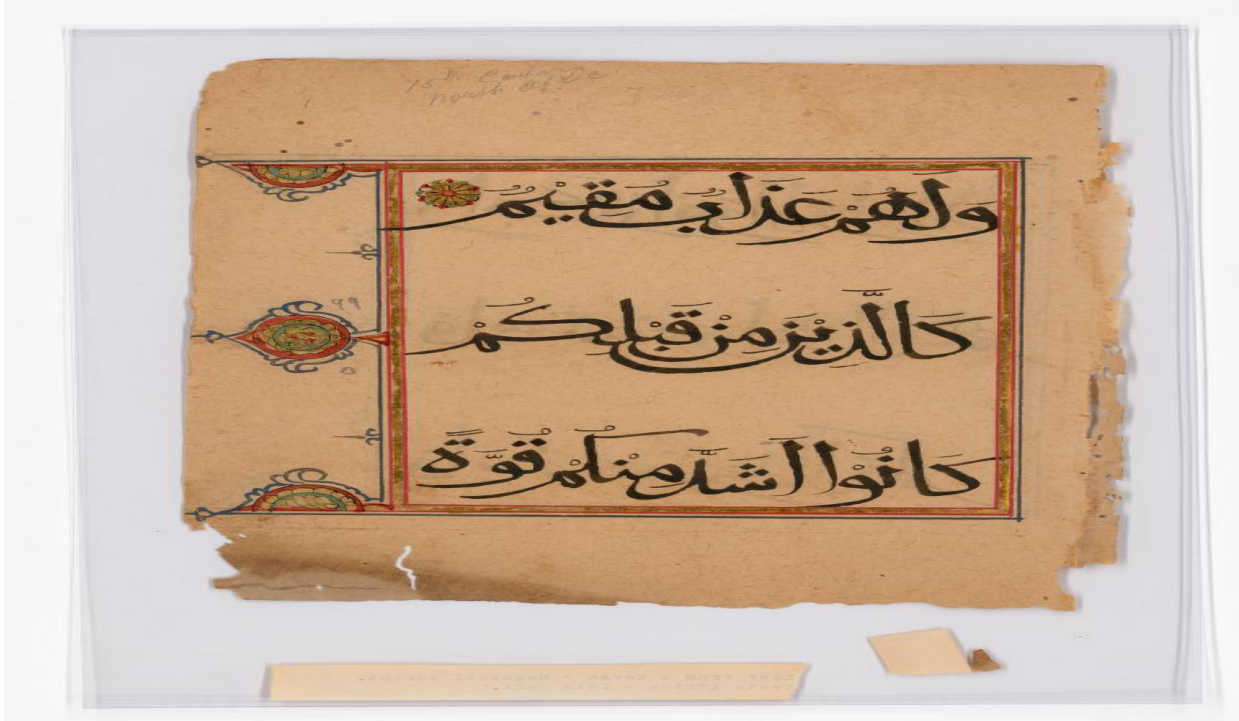 15th Century
North Africa
وَلَهُمْ عَذَابٌ مُقِيْمٌ
كَالَّذِيْنَ مِنْ قَبْلِكُمْ
كَانُوْا اَشَدَّ مِنْكُمْ قُوَّةً